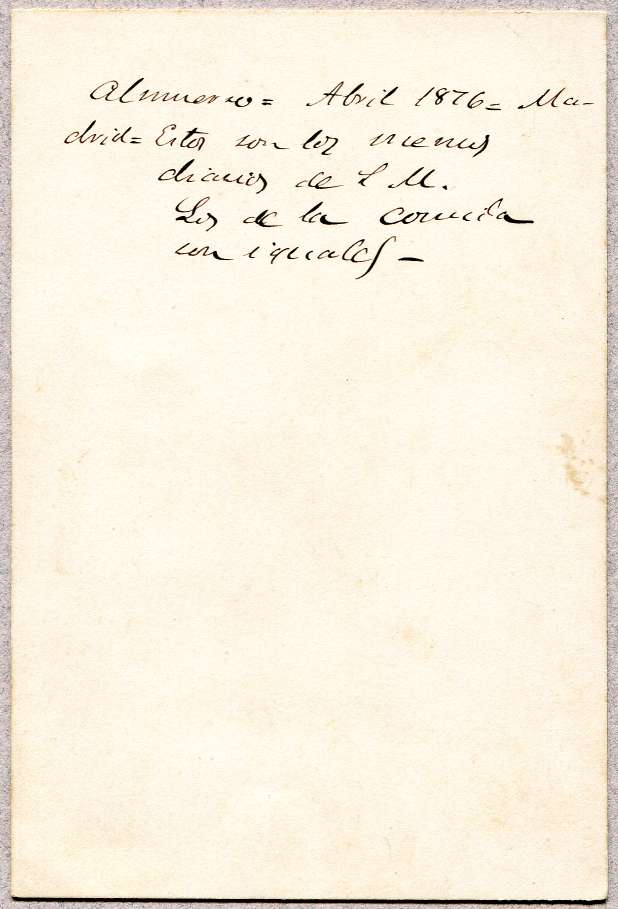 Almuerzo= Abril 1876= Ma-
drid= Estos son los menus
diarios de S. M.
Los de la comida
son iguales-